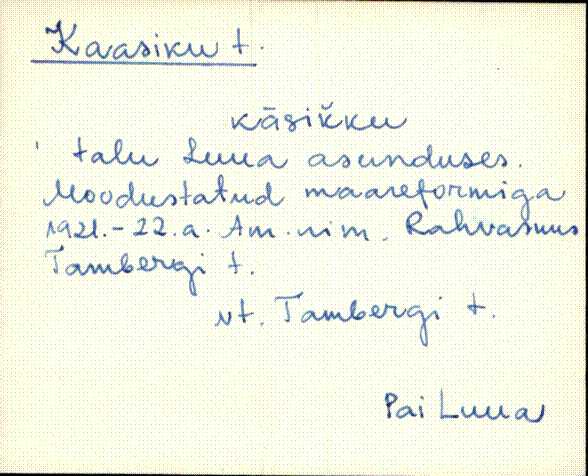 Kaasiku t.
kāsik̆ku
talu Luua asunduses.
Moodustatud maareformiga
1921.-22.a. Am. nim. Rahvasuus
Tambergi t.
vt. Tambergi t.
Pai Luua